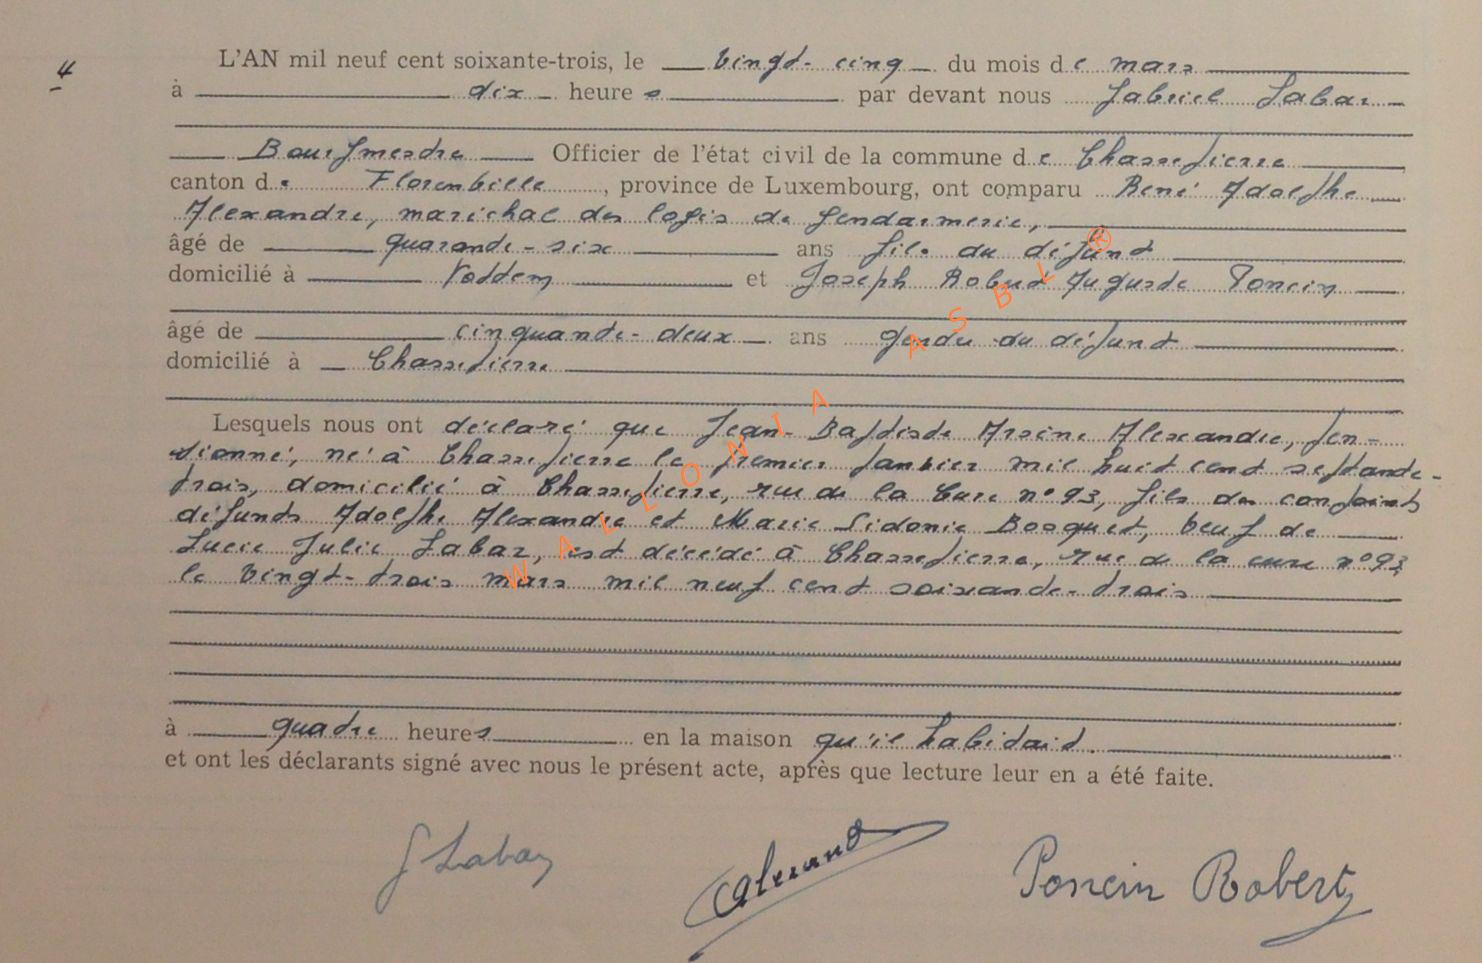 4
L'AN mil neuf cent soixante-trois, le vingt-cinq du mois de mars
à dix heures par devant nous Gabriel Labar
Bourgmestre Officier de l'état civil de la commune de Chassepierre
canton de Florenville, province de Luxembourg, ont comparu René Adolphe
Alexandre, maréchal des logis de gendarmerie,
âgé de quarante-six ans fils du défunt
domicilié à Vottem et Joseph Robert Auguste Poncin
âgé de cinquante-deux ans gendre du défunt
domicilié à Chassepierre
Lesquels nous ont déclaré que Jean-Baptiste Arsène Alexandre, pen-
sionné, né à Chassepierre le premier janvier mil huit cent septante-
trois, domicilié à Chassepierre, rue de la Cure n° 93, fils des conjoints
défunts Adolphe Alexandre et Marie Sidonie Bosquet, veuf de
Lucie Julie Labar, est décédé à Chassepierre, rue de la cure n° 93
le vingt-trois mars mil neuf cent soixante-trois
à quatre heures en la maison qu'il habitait.
et ont les déclarants signé avec nous le présent acte, après que lecture leur en a été faite.
G Labar Alexandre Poncin Robert
WALLONIA ASBL ®